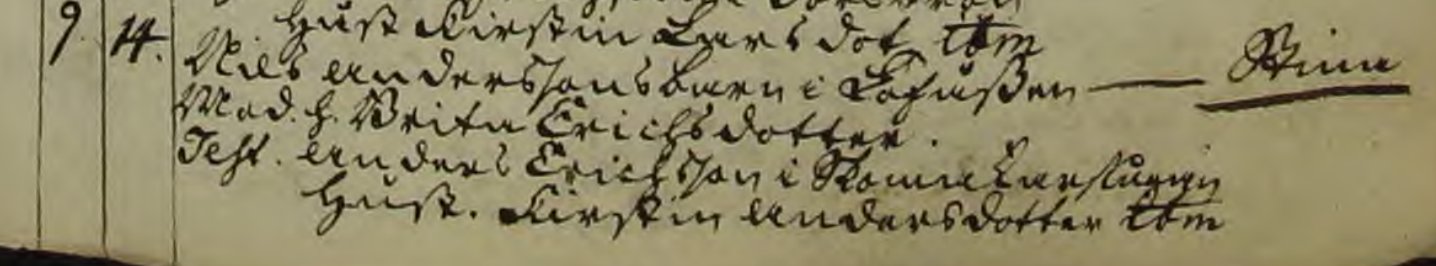 Hust. Kirstin Larsdot. ibm
9 14. Nils Anderssons barn i Lofåsen — Stina
Mod. h. Brita Erichsdotter.
Test. Anders Erichsson i
Hust. Kirstin Andersdotter ibm